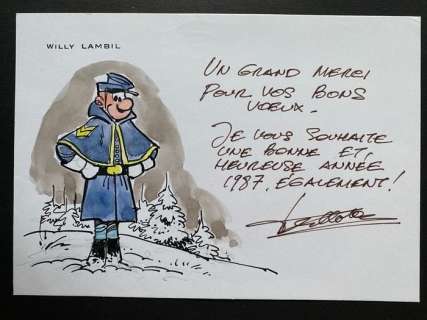 WILLY LAMBIL
UN GRAND MERCI
POUR VOS BONS
VOEUX.
JE VOUS SOUHAITE
UNE BONNE ET,
HEUREUSE ANNÉE
1987, EGALEMENT!